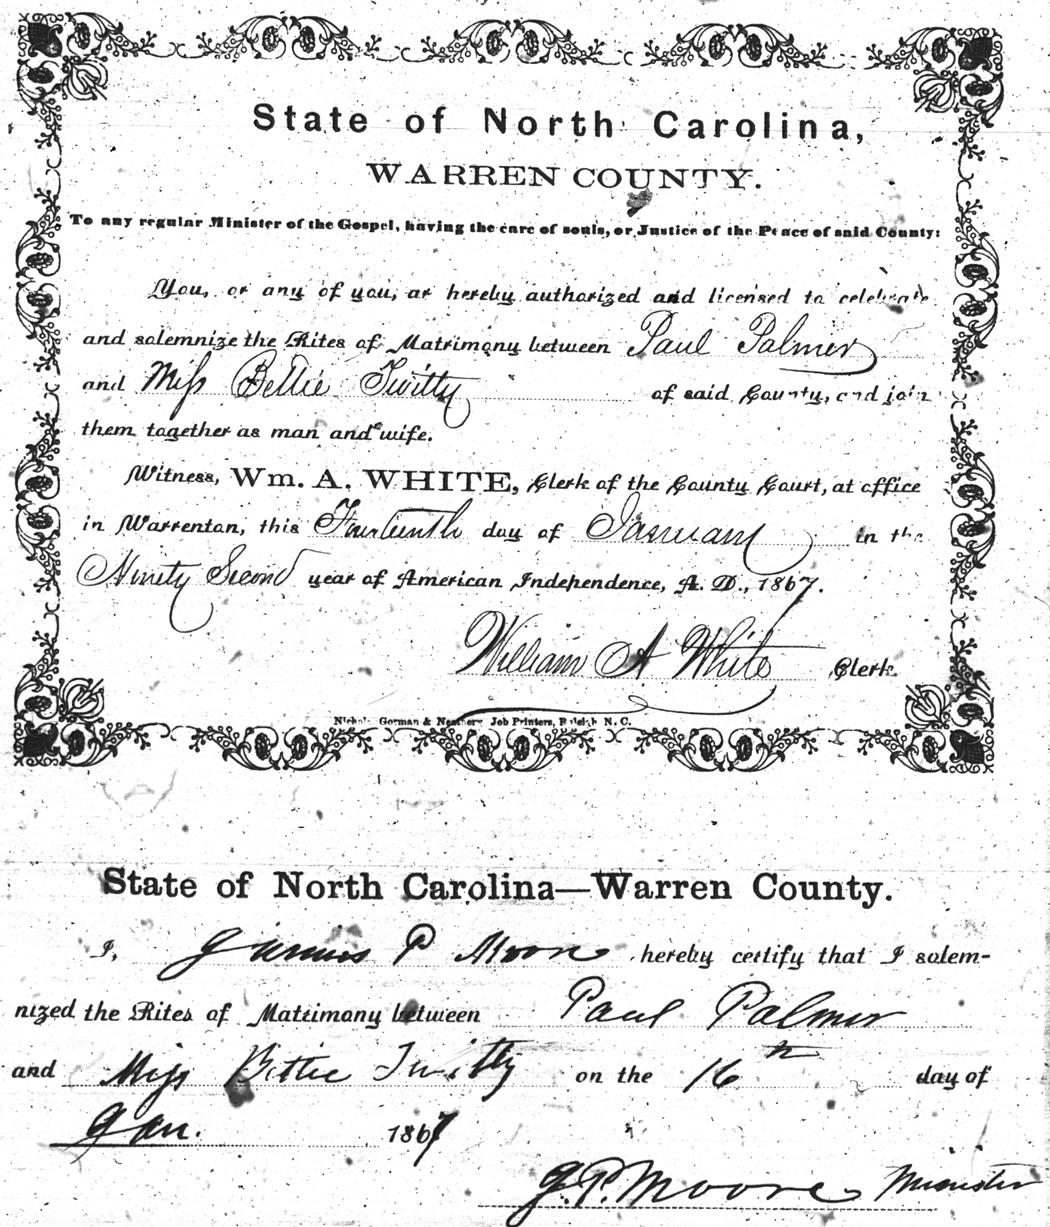 State of North Carolina,
WARREN COUNTY.
To any regular Minister of the Gospel, having the care of souls, or Justice of the Peace of said County:
You, or any of you, ar hereby authorized and licensed to celebrate
and solemnize the Rites of Matrimony between Paul Palmer
and Miss Bettie Twitty of said County, and join
them together as man and wife.
Witness, Wm. A. WHITE, Clerk of the County Court, at office
in Warrenton, this Fourteenth day of January in the
Ninety Second year of American Independence, A. D., 1867.
William A White Clerk.
Nichols Gorman & Neathery Job Printers, Raleigh N. C.
State of North Carolina—Warren County.
I, P Moore hereby certify that I solem-
nized the Rites of Matrimony between Paul Palmer
and Miss Bettie Twitty on the 16th day of
Jan. 1867
J. P. Moore Minister